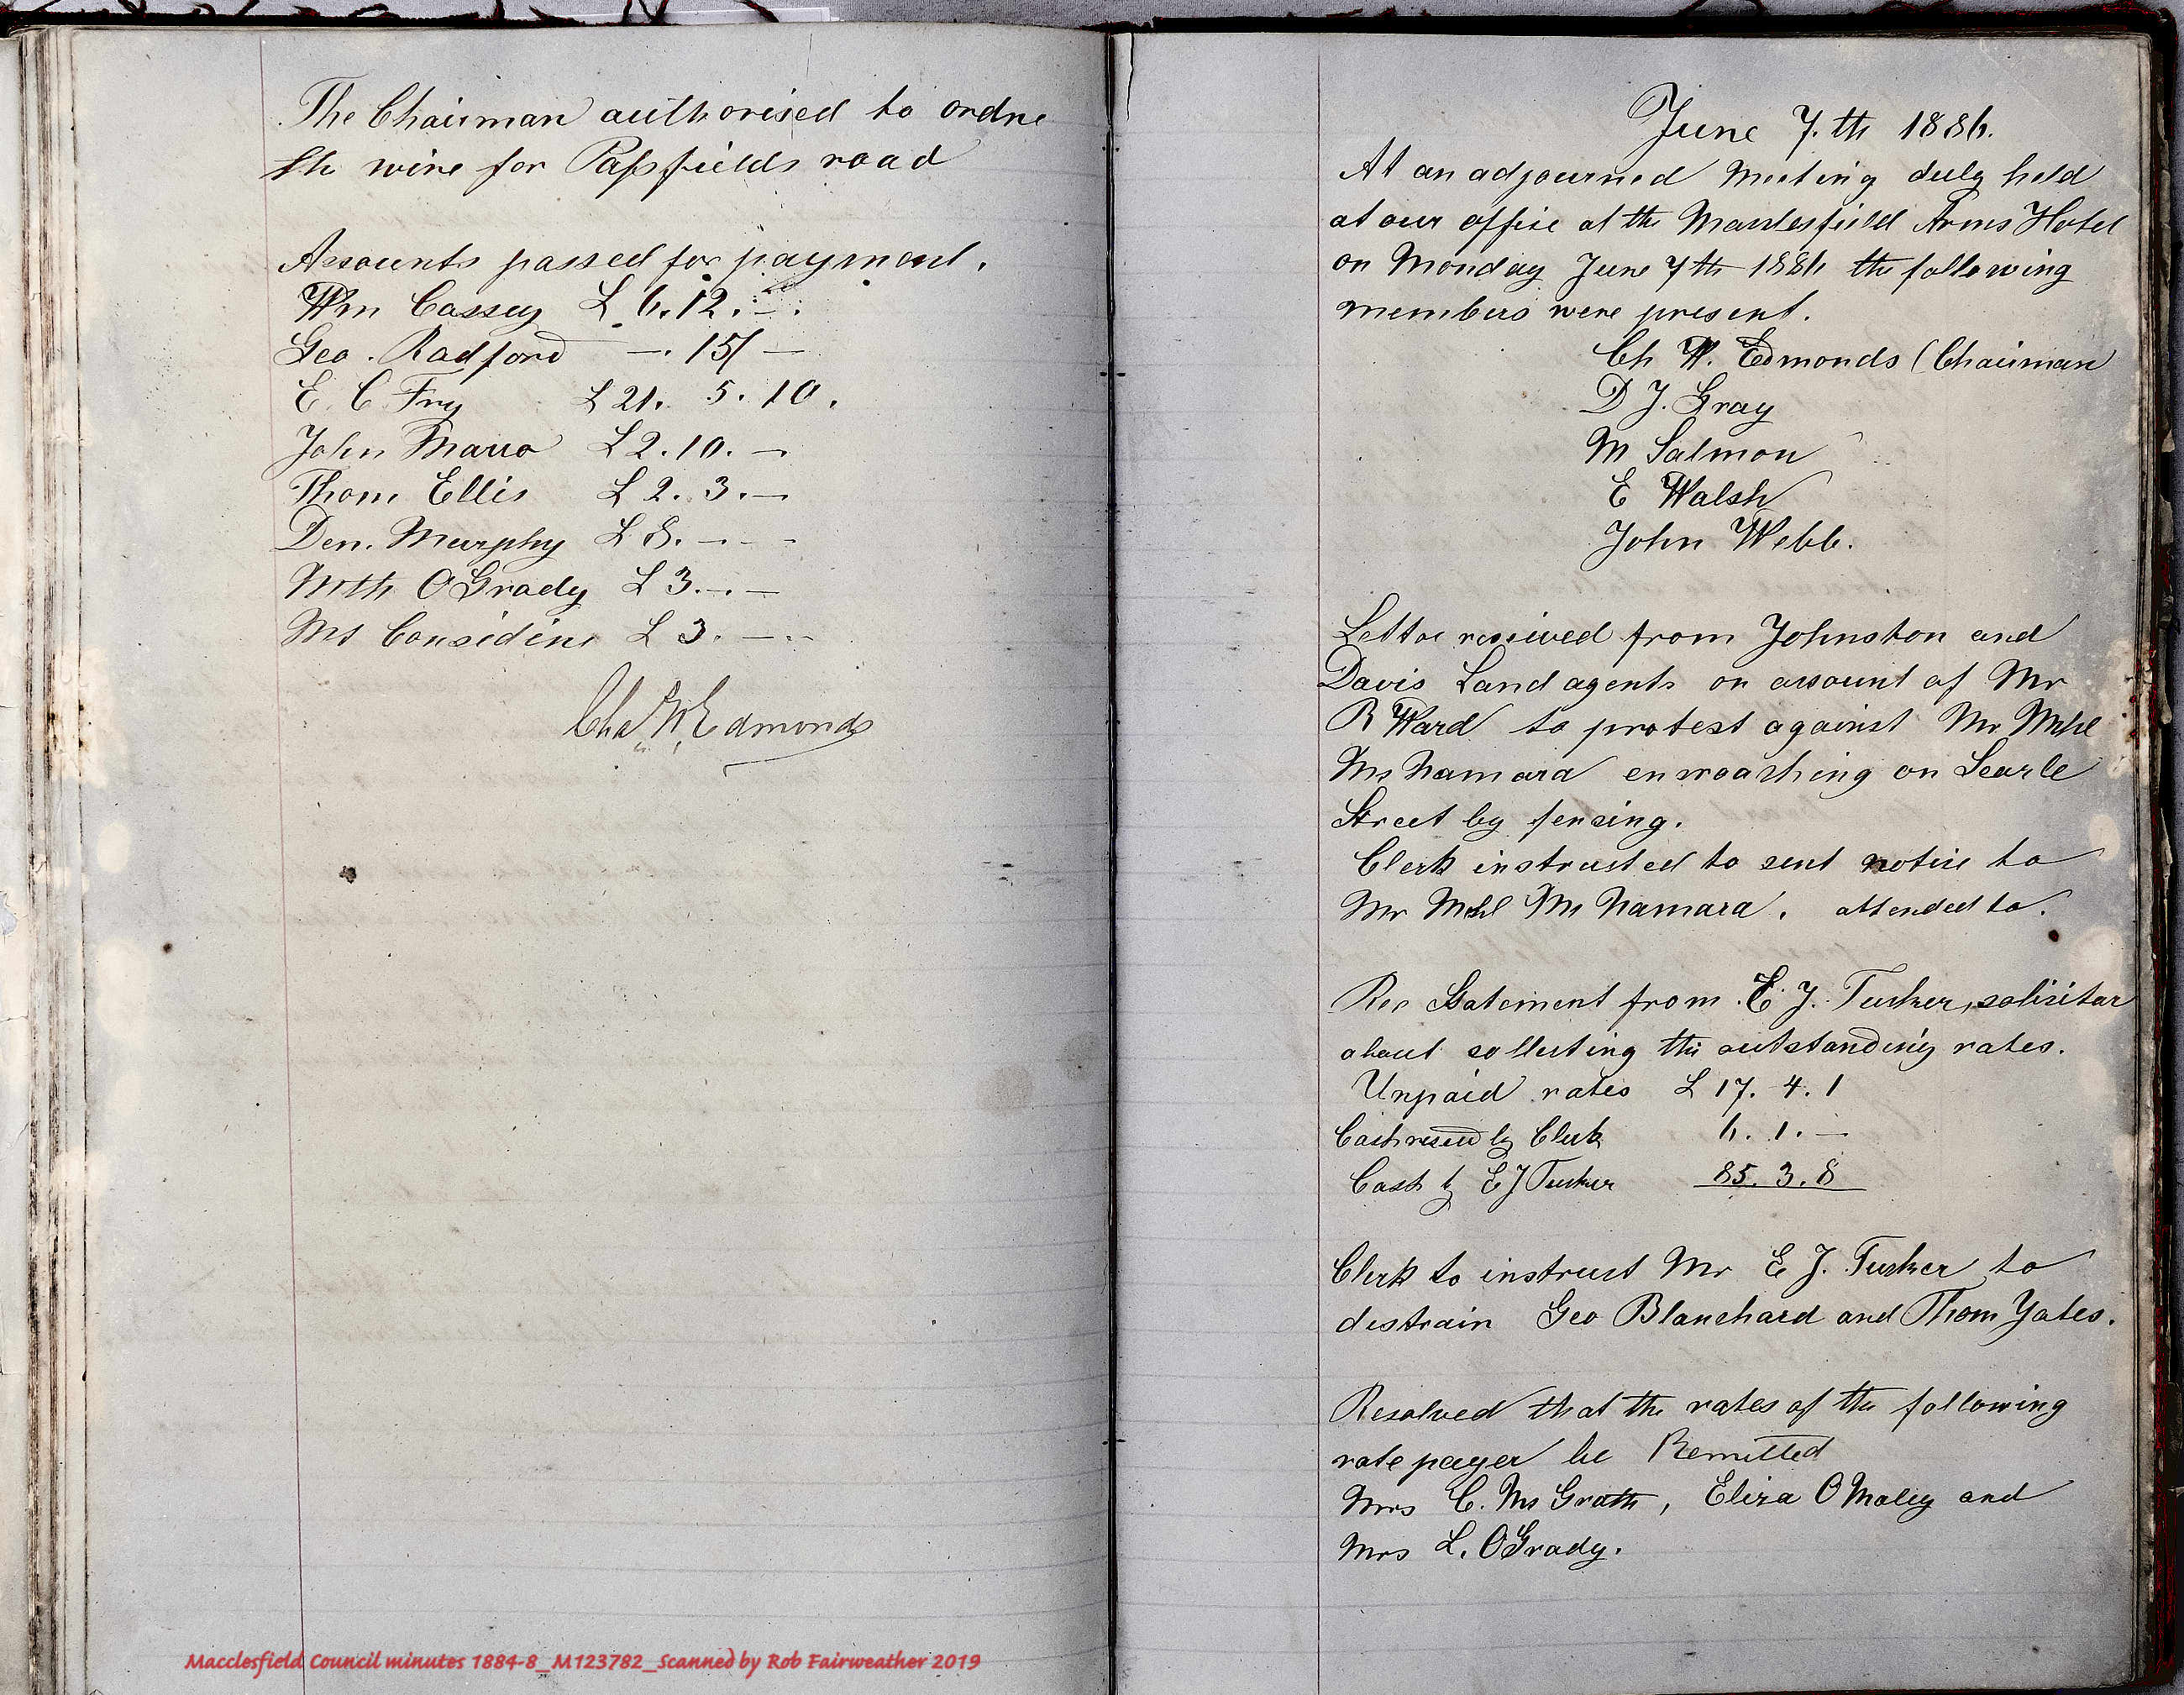 The Chairman authorised to ordre
the wire for Passfields road
Accounts passed for payment.
Wm Cassey £ 6.12.-.
Geo. Radford -. 15/ -
E. C. Fry £ 21. 5. 10.
John Marro £ 2. 10. -
Thom Ellis £ 2. 3. -
Den. Murphy £ 8. - - -
Mth O Grady £ 3. -. -
Mt Considine £ 3. - - -
Cha W Edmonds
June 7.th 1886.
At an adjourned Meeting duly held
at our office at the Macclesfield Arms Hotel
on Monday June 7th 1886 the following
members were present.
Ch W. Edmonds (Chairman
D J. Gray
M Salmon
E Walsh
John Webb.
Letter received from Johnston and
Davis Land agents on account of Mr
R Ward to protest against Mr Mhl
Mc Namara encroaching on Searle
Street by fencing.
Clerk instructed to sent notice to
Mr Mhl Mc Namara. attended to.
Rec Statement from E. J. Tucker, solicitor
about collecting the outstanding rates.
Unpaid rates £ 17. 4. 1
Cash received by Clerk 6. 1. -
Cash by E J Tucker 85. 3. 8
Clerk to instruct Mr E J. Tucker to
distrain Geo Blanchard and Thom Yates.
Resolved that the rates of the following
rate payer be Remitted
Mrs C. Mc Grath, Eliza O Maley and
Mrs L. O Grady.
Macclesfield Council minutes 1884-8_M123782_Scanned by Rob Fairweather 2019